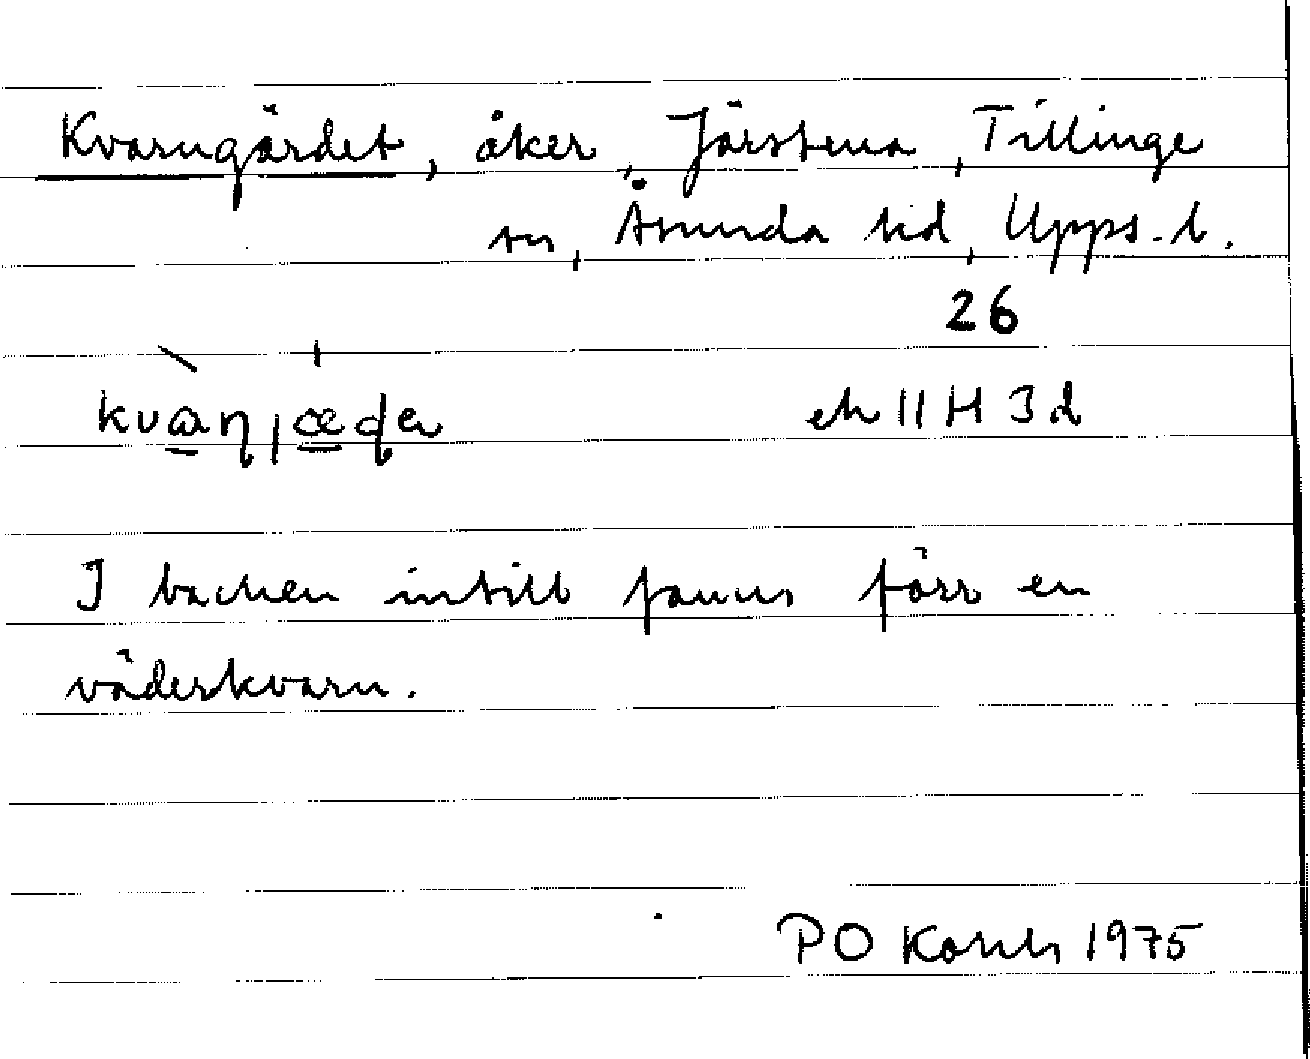 Kvarngärdet, åker, Järstena, Tillinge
sn, Åsunda hd, Upps. l.
26
ek 11 H 3 d
I backen intill fanns förr en
väderkvarn.
PO 1975